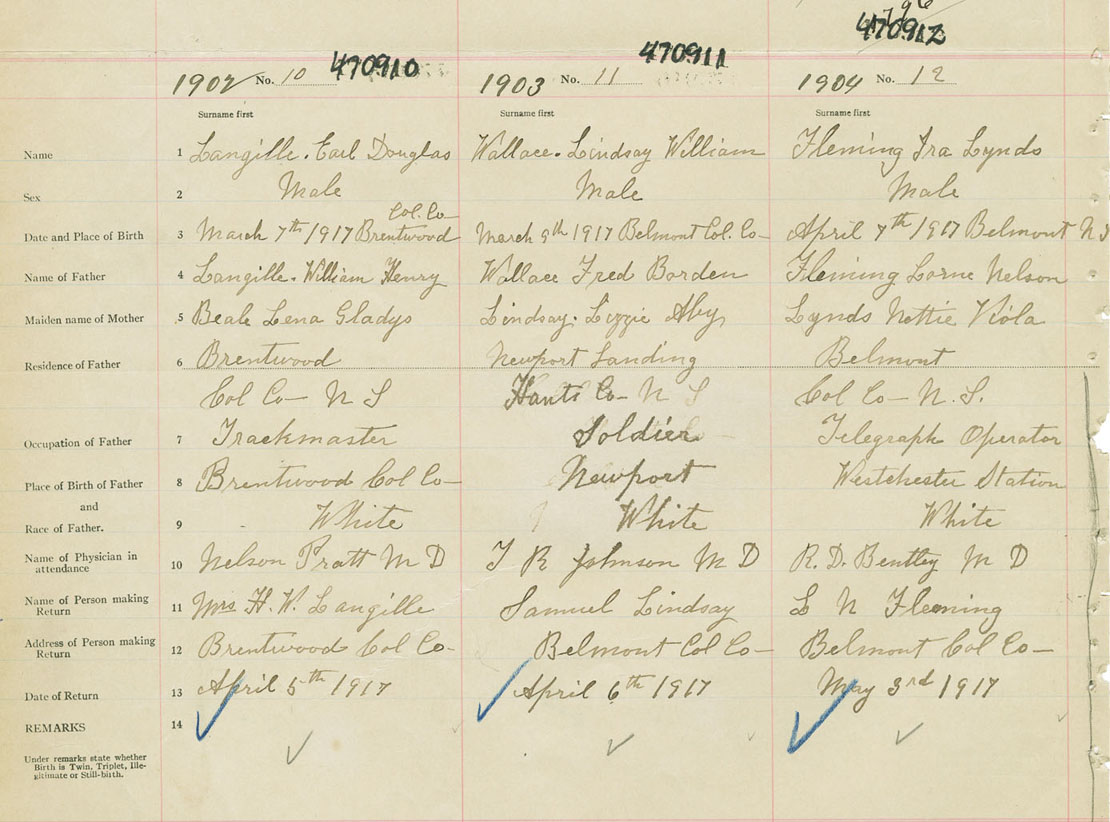 196
470910 470911 470912
1902 No. 10 1903 No. 11 1904 No. 12
Surname first Surname first Surname first
Name 1 Langille. Earl Douglas Wallace. Lindsay William Fleming Ira Lynds
Sex 2 Male Male Male
Col. Co
Date and Place of Birth 3 March 7th 1917 Brentwood March 9th 1917 Belmont Col. Co April 7th 1917 Belmont N S
Name of Father 4 Langille. William Henry Wallace Fred Borden Fleming Lorne Nelson
Maiden name of Mother 5 Beale Lena Gladys Lindsay. Lizzie Aby Lynds Nettie Viola
Residence of Father 6 Brentwood Newport Landing Belmont
Col Co N S Hants Co N S Col Co N. S.
Occupation of Father 7 Trackmaster Soldier Telegraph Operator
Place of Birth of Father 8 Brentwood Col Co Newport Westchester Station
and
Race of Father. 9 White White White
Name of Physician in
attendance 10 Nelson Pratt M D T R Johnson M D R. D. Bentley M D
Name of Person making
Return 11 Mrs H. W. Langille Samuel Lindsay L N Fleming
Address of Person making
Return 12 Brentwood Col Co Belmont Col Co Belmont Col Co
Date of Return 13 April 5th 1917 April 6th 1917 May 3rd 1917
REMARKS 14
Under remarks state whether
Birth is Twin, Triplet, Ille-
gitimate or Still-birth.